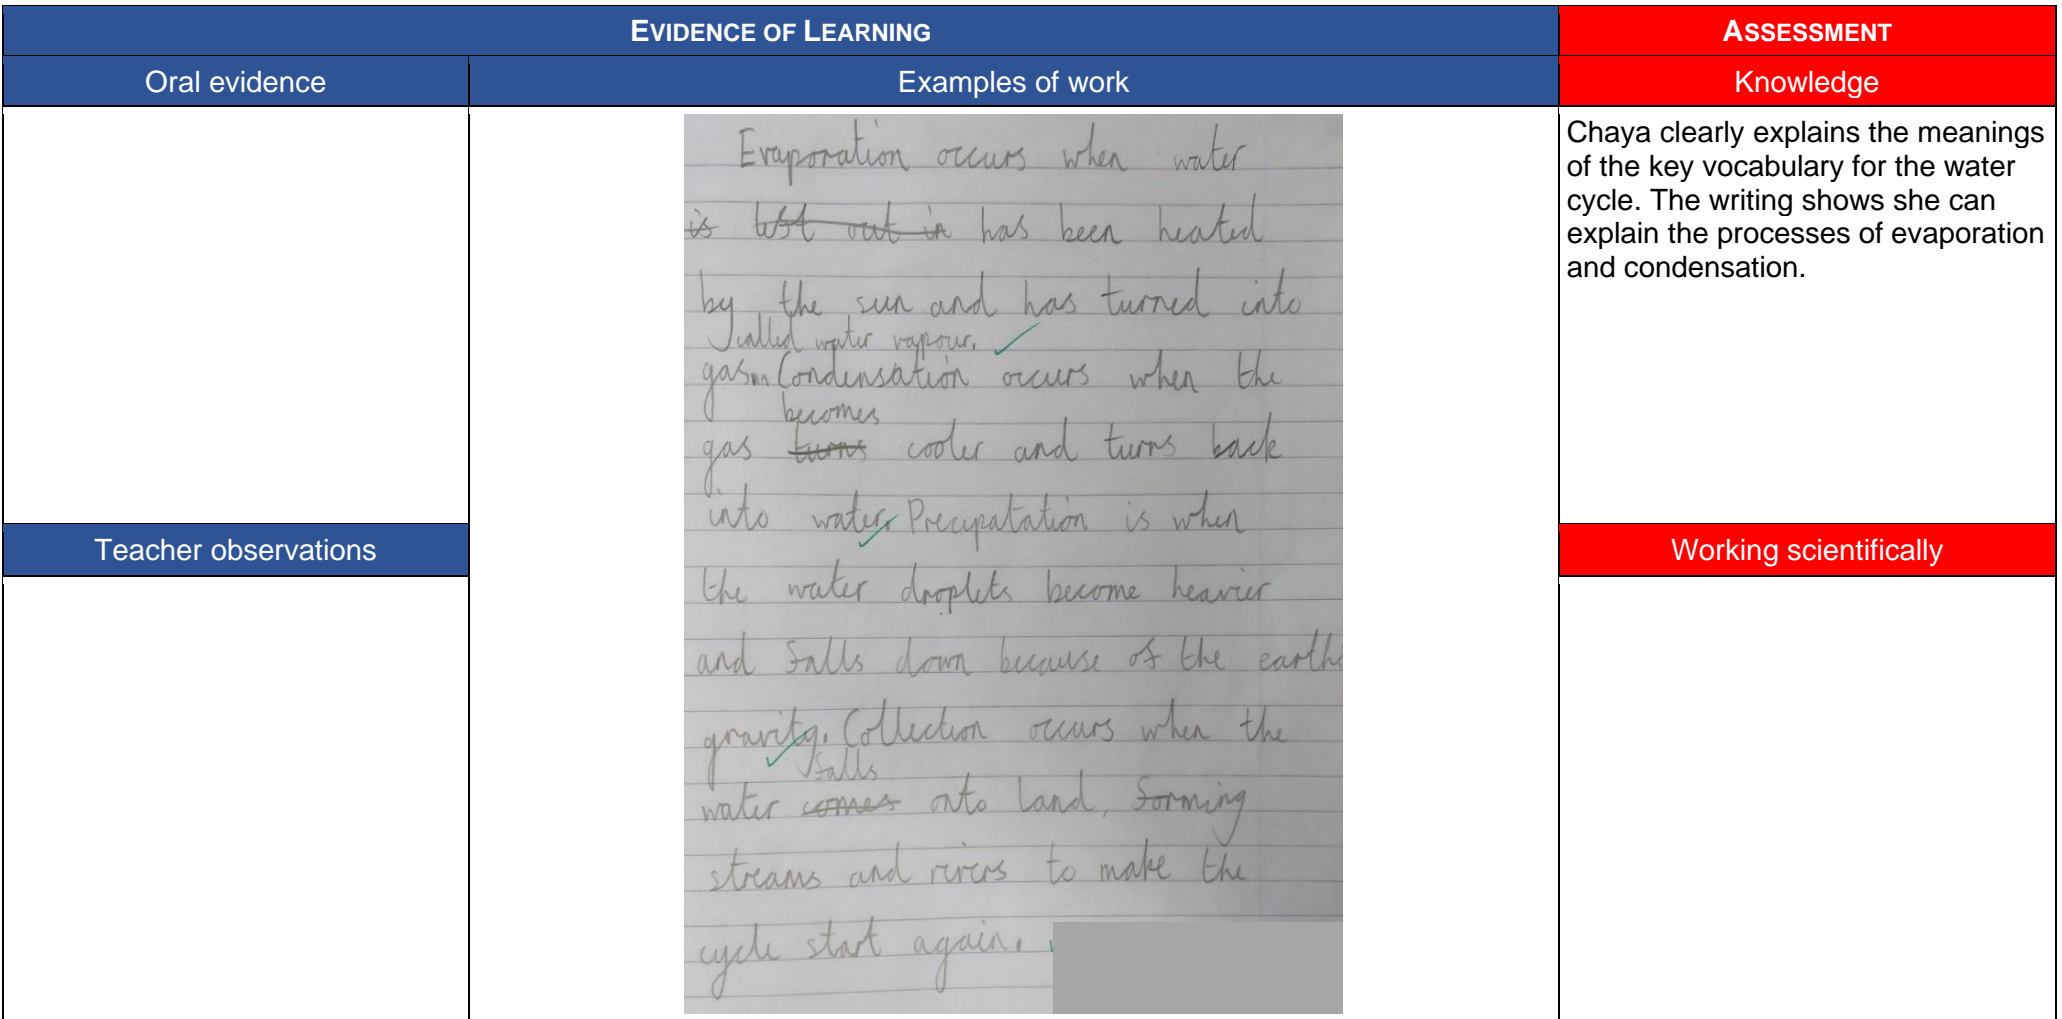 EVIDENCE OF LEARNING
ASSESSMENT
Oral evidence
Examples of work
Knowledge
Evaporation occurs when water
is left out in has been heated
by the sun and has turned into
called water vapour.
gas Condensation occurs when the
becomes
gas turns cooler and turns back
into water. Precupatation is when
the water droplets become heavier
and falls down because of the earths
gravity. Collection occurs when the
falls
water comes onto land, forming
streams and rivers to make the
cycle start again.
Chaya clearly explains the meanings
of the key vocabulary for the water
cycle. The writing shows she can
explain the processes of evaporation
and condensation.
Teacher observations
Working scientifically